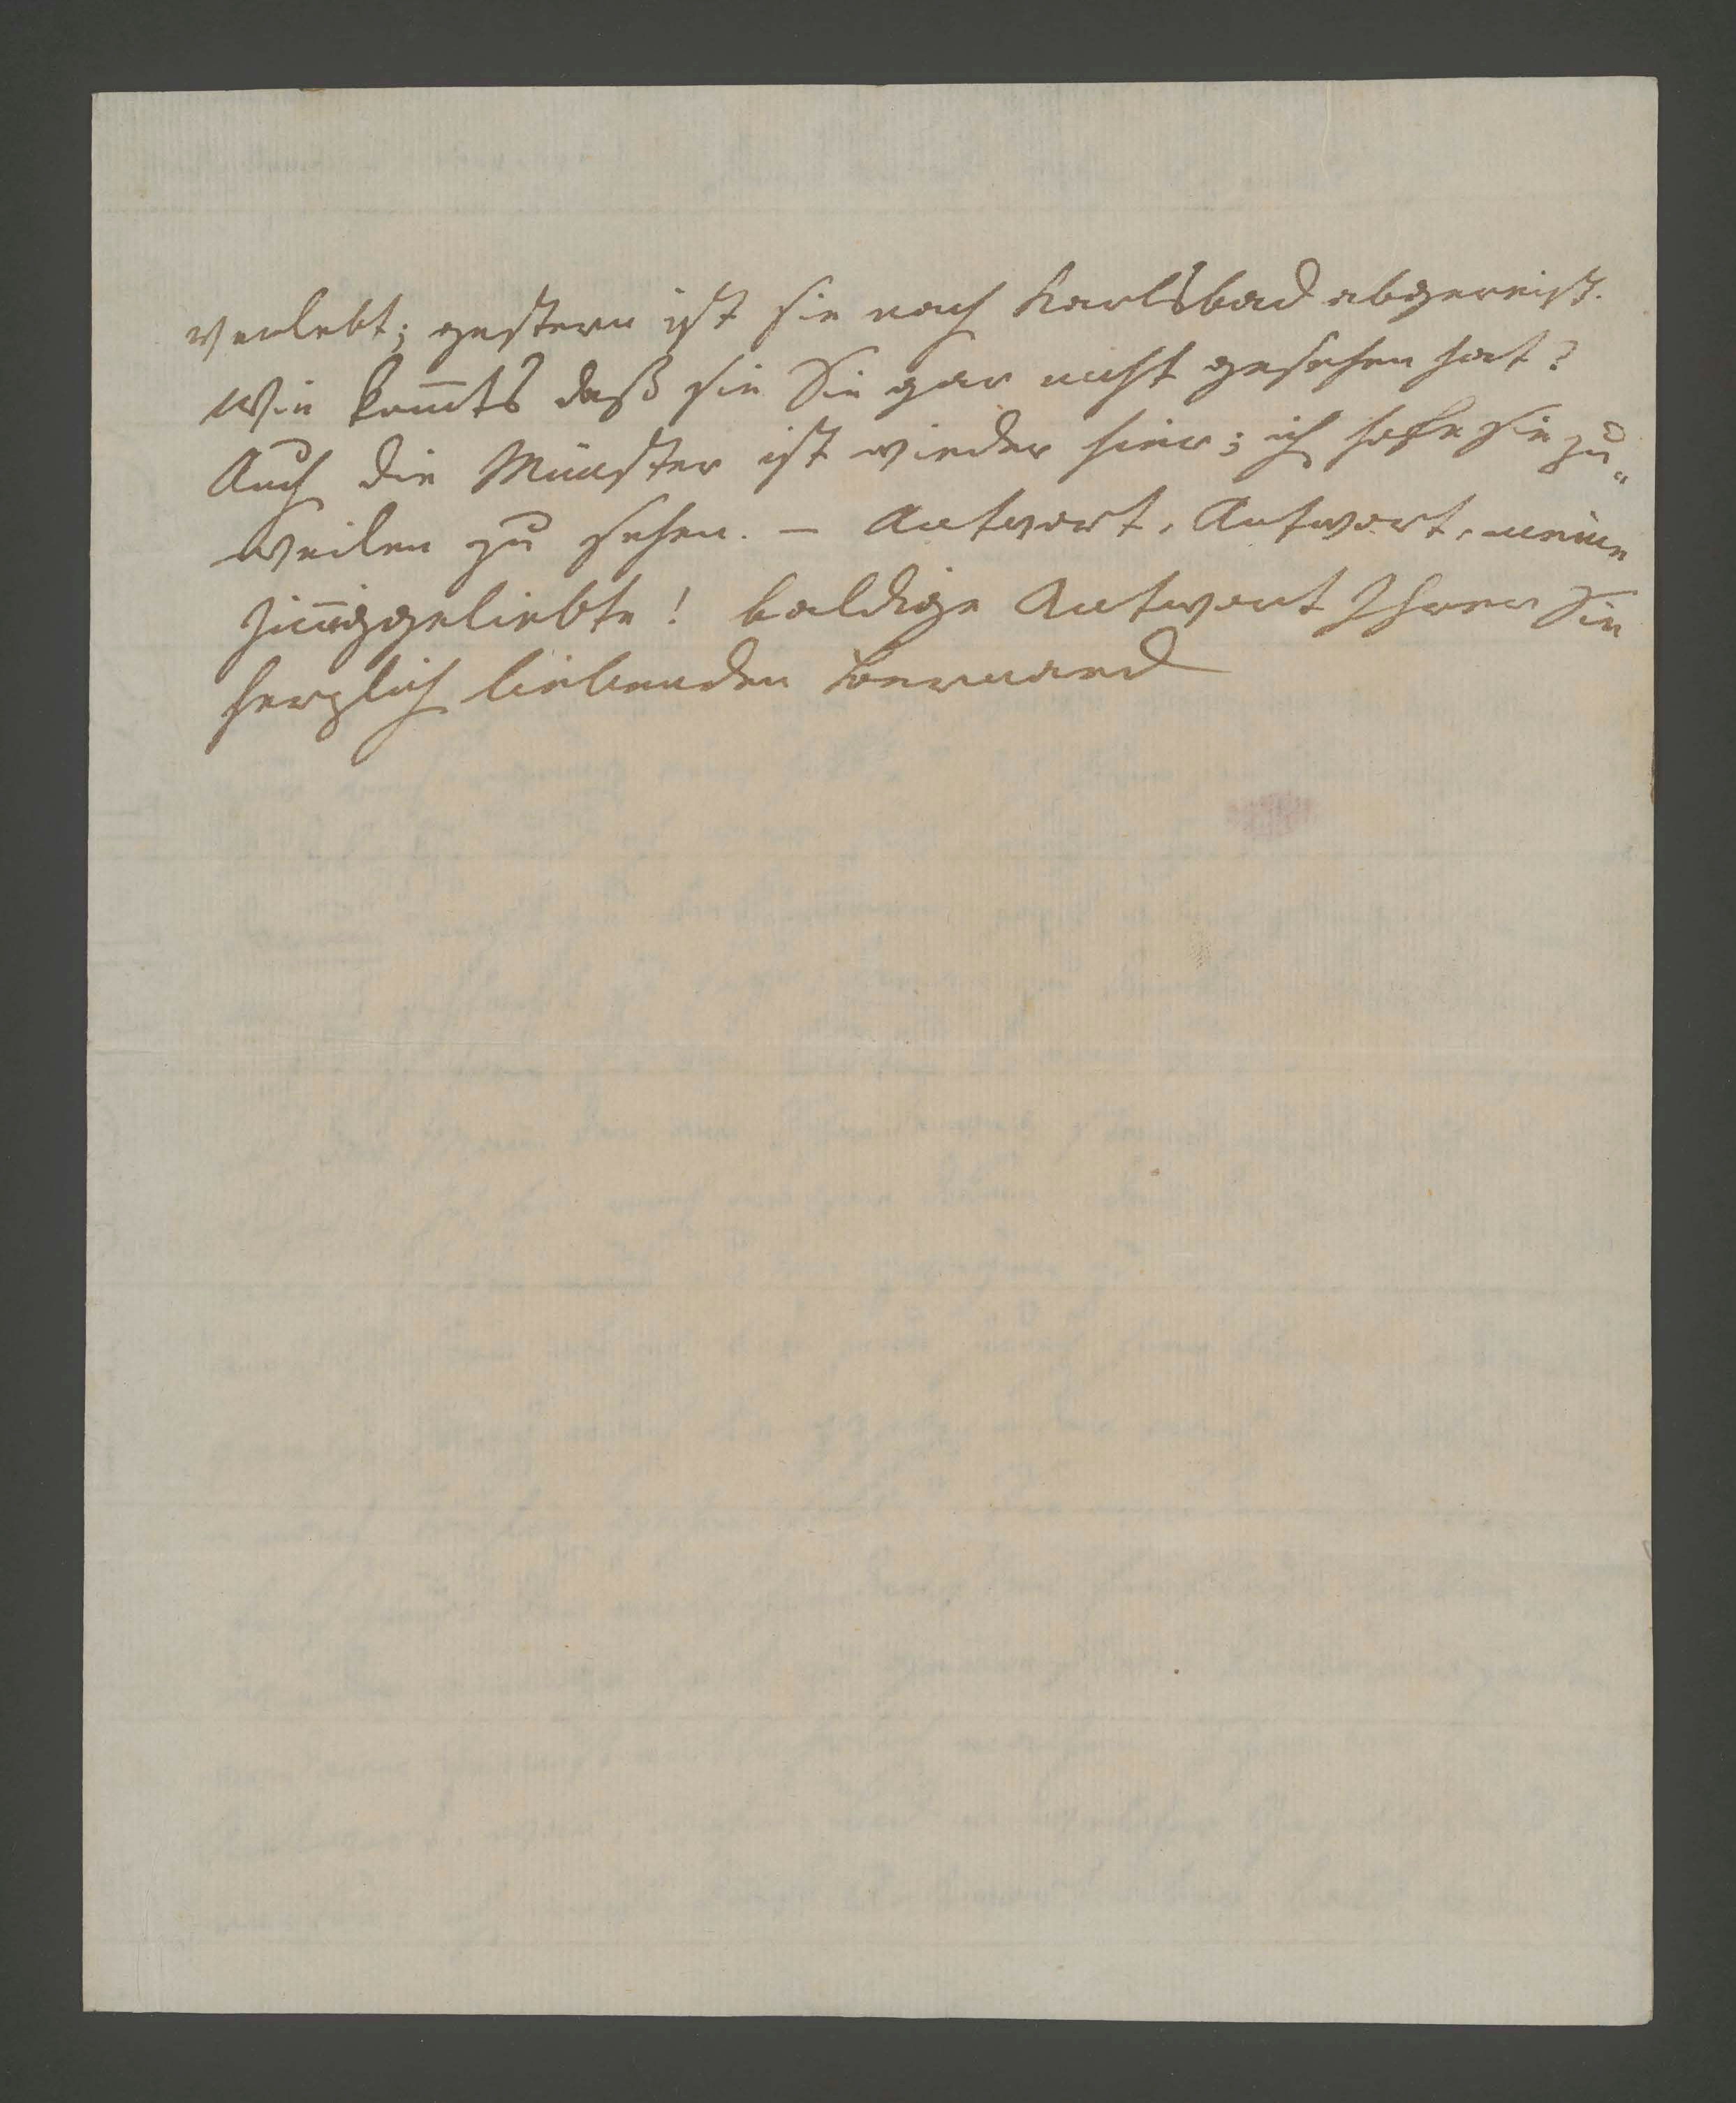 verlebt; gestern ist sie nach Karlsbad abgereist.
Wie kom̅ts daß sie Sie gar nicht gesehen hat?
Auch die Münster ist wieder hier; ich hoffe sie zu„
weilen zu sehen. – Antwort, Antwort, meine
Jin̅iggeliebte! baldige Antwort Ihrer Sie
herzlich liebenden Bernard